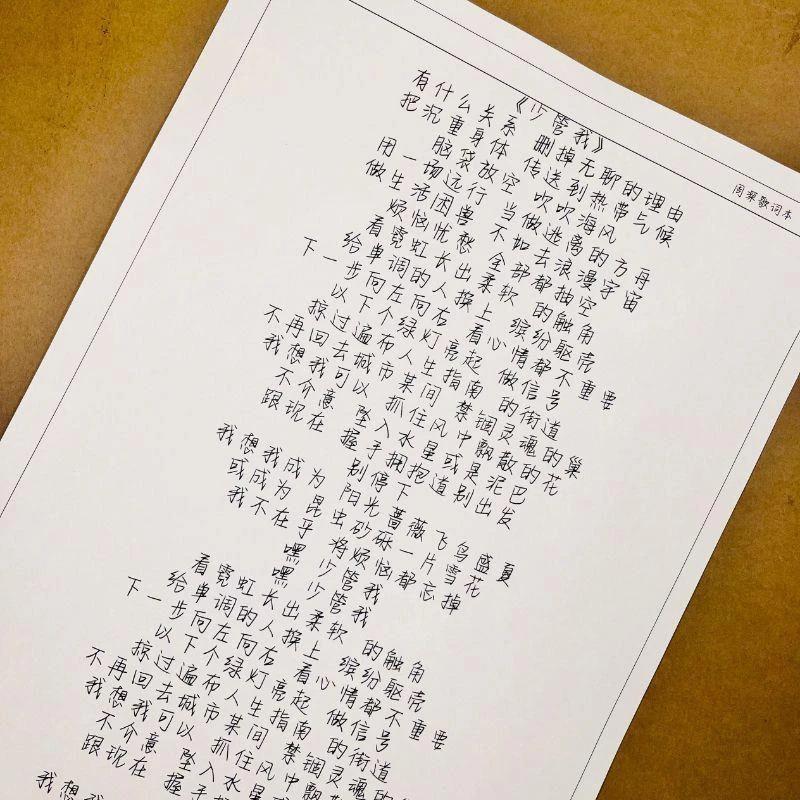 周深歌词本
《少管我》
有什么关系 删掉无聊的理由
把沉重身体 传送到热带气候
脑袋放空 吹吹海风
用一场远行 当做逃离的方舟
做生活困兽 不如去浪漫宇宙
烦恼忧愁 全部都抽空
看霓虹长出 柔软的触角
给单调的人 换上缤纷躯壳
下一步向左向右 看心情都不重要
以下个绿灯亮起 做信号
掠过遍布人生指南的街道
不再回去城市某间 禁锢灵魂的巢
我想我可以 抓住风中飘散的花
不介意 坠入水星或是泥巴
跟现在 握手拥抱道别出发
别停下
我想我成为 阳光蔷薇飞鸟盛夏
或成为昆虫砂砾一片雪花
我不在乎 将烦恼都忘掉
嘿 少管我
嘿 少管我
看霓虹长出 柔软的触角
给单调的人 换上缤纷躯壳
下一步向左向右 看心情都不重要
以下个绿灯亮起 做信号
掠过遍布人生指南的街道
不再回去城市某间 禁锢灵魂的
我想我可以 抓住风中飘
不介意 坠入水星
跟现在 握手
我想我